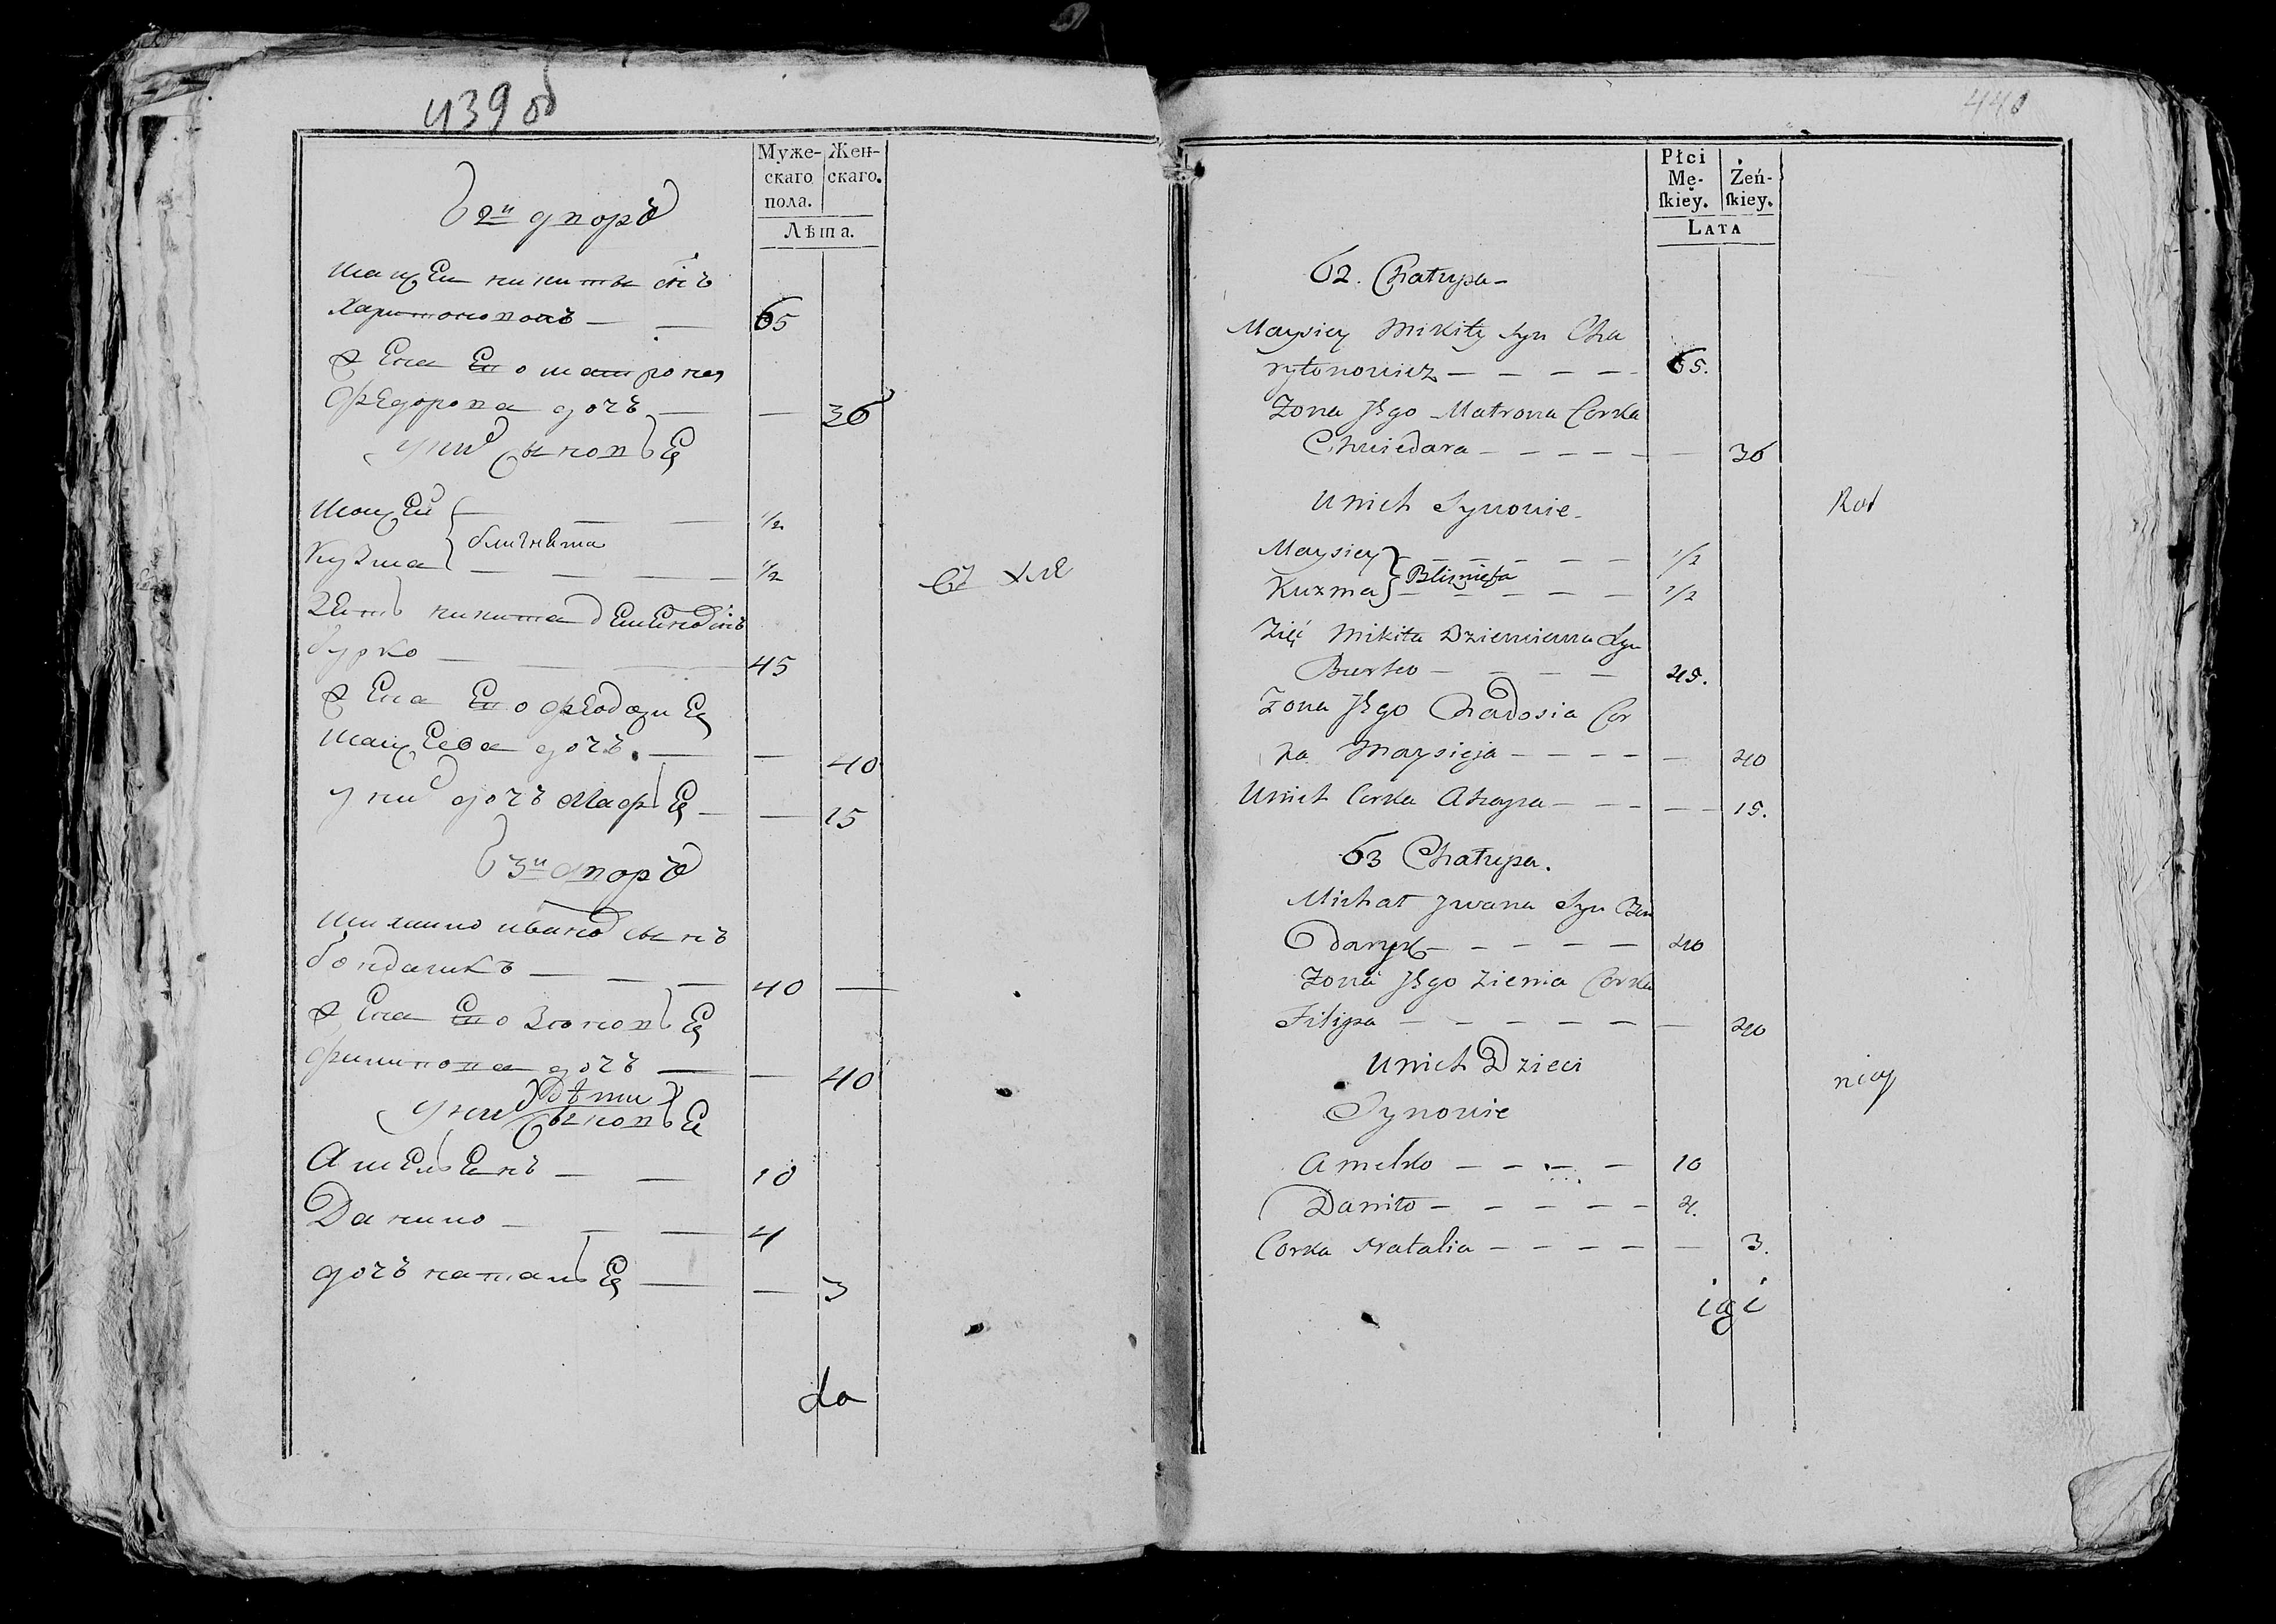 439 об
Муже-
скаго
пола.
Жен-
скаго.
Лѣта.
62й дворъ
Мацей никиты снъ
Харитоновичъ — — 65
Жена Его матрона
Федорова дочъ — — 36
у них сыновья
Моисей — — — 1/2
близнята
Кузма — — — 1/2
Зять никита деменов снъ
бурко — — — 45
Жена Его феодозия
дочъ — — 40
у них дочъ — — 15
63й дворъ
михаило иванов сынъ
бондарикъ — — — 40 —
Жена Его Зеновья
филипова дочъ — — 40
у них дѣти
сыновья
Амельянъ — — 10
Данило — — — 4
дочъ наталья — — 3
да
440
Płci
Mę-
ſkiey.
Żeń-
ſkiey.
Lata
62. Chałupa —
Maysiey Mikity Syn Cha
rytonowicz — — — — 65.
Zona Jego Matrona Corka
Chwiedara — — — — — — 36
U nich Synowie —
Maysiey — — — — — — 1/2
Bliznięta
Kuzma — — — — — 1/2
Zięć Mikita Dziemiana Syn
Burko — — — — 45.
Zona Jego Chadosia Cor
ka Maysieja — — — — — 40
U nich Corka Ahapa — — — — — 15.
63 Chałupa.
Michał Jwana Syn Bon
daryk — — — — — 40
Zona Jego Zienia Corka
Filipa — — — — — — — 40
U nich Dzieci
Synowie
Amelko — — — — 10
Daniło — — — — — — 4.
Corka Natalia — — — — — 3.